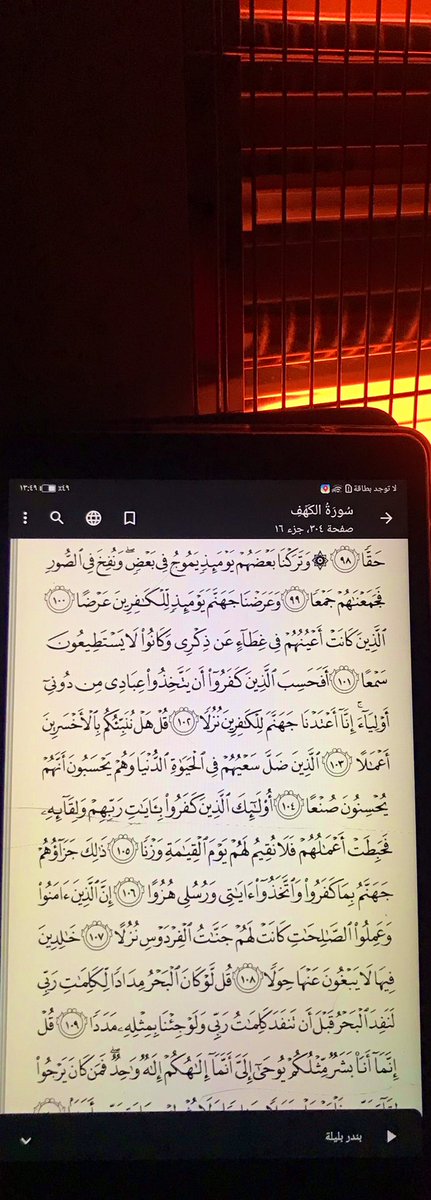 لا توجد بطاقة ٤٩٪ ١٣:٤٩
سُورَةُ الكَهْفِ
صفحة ٣٠٤، جزء ١٦
حَقًّا ٩٨ ۞ وَتَرَكْنَا بَعْضَهُمْ يَوْمَئِذٍ يَمُوجُ فِي بَعْضٍ ۖ وَنُفِخَ فِي ٱلصُّورِ
فَجَمَعْنَٰهُمْ جَمْعًا ٩٩ وَعَرَضْنَا جَهَنَّمَ يَوْمَئِذٍ لِّلْكَٰفِرِينَ عَرْضًا ١٠٠
ٱلَّذِينَ كَانَتْ أَعْيُنُهُمْ فِي غِطَآءٍ عَن ذِكْرِي وَكَانُوا۟ لَا يَسْتَطِيعُونَ
سَمْعًا ١٠١ أَفَحَسِبَ ٱلَّذِينَ كَفَرُوٓا۟ أَن يَتَّخِذُوا۟ عِبَادِي مِن دُونِيٓ
أَوْلِيَآءَ ۚ إِنَّآ أَعْتَدْنَا جَهَنَّمَ لِلْكَٰفِرِينَ نُزُلًا ١٠٢ قُلْ هَلْ نُنَبِّئُكُم بِٱلْأَخْسَرِينَ
أَعْمَٰلًا ١٠٣ ٱلَّذِينَ ضَلَّ سَعْيُهُمْ فِي ٱلْحَيَوٰةِ ٱلدُّنْيَا وَهُمْ يَحْسَبُونَ أَنَّهُمْ
يُحْسِنُونَ صُنْعًا ١٠٤ أُو۟لَٰٓئِكَ ٱلَّذِينَ كَفَرُوا۟ بِـَٔايَٰتِ رَبِّهِمْ وَلِقَآئِهِۦ
فَحَبِطَتْ أَعْمَٰلُهُمْ فَلَا نُقِيمُ لَهُمْ يَوْمَ ٱلْقِيَٰمَةِ وَزْنًا ١٠٥ ذَٰلِكَ جَزَآؤُهُمْ
جَهَنَّمُ بِمَا كَفَرُوا۟ وَٱتَّخَذُوٓا۟ ءَايَٰتِي وَرُسُلِي هُزُوًا ١٠٦ إِنَّ ٱلَّذِينَ ءَامَنُوا۟
وَعَمِلُوا۟ ٱلصَّٰلِحَٰتِ كَانَتْ لَهُمْ جَنَّٰتُ ٱلْفِرْدَوْسِ نُزُلًا ١٠٧ خَٰلِدِينَ
فِيهَا لَا يَبْغُونَ عَنْهَا حِوَلًا ١٠٨ قُل لَّوْ كَانَ ٱلْبَحْرُ مِدَادًا لِّكَلِمَٰتِ رَبِّي
لَنَفِدَ ٱلْبَحْرُ قَبْلَ أَن تَنفَدَ كَلِمَٰتُ رَبِّي وَلَوْ جِئْنَا بِمِثْلِهِۦ مَدَدًا ١٠٩ قُلْ
إِنَّمَآ أَنَا۠ بَشَرٌ مِّثْلُكُمْ يُوحَىٰٓ إِلَيَّ أَنَّمَآ إِلَٰهُكُمْ إِلَٰهٌ وَٰحِدٌ ۖ فَمَن كَانَ يَرْجُوا۟
بندر بليلة